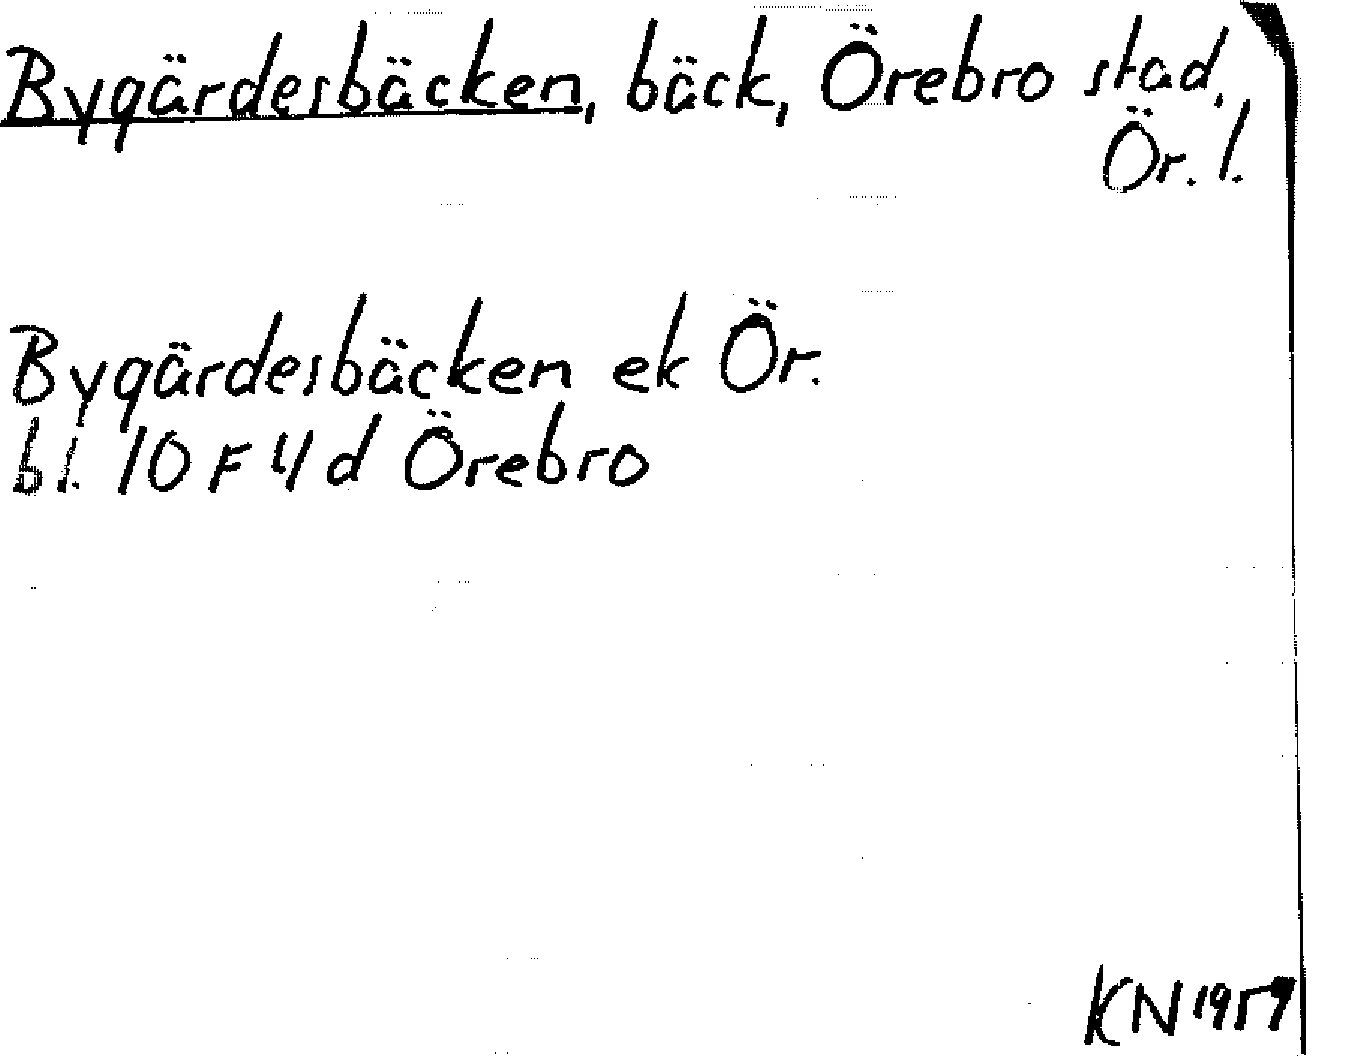 Bygärdesbäcken, bäck, Örebro stad,
Ör. l.
Bygärdesbäcken ek Ör.
bl. 10 F 4 d Örebro
KN 1957